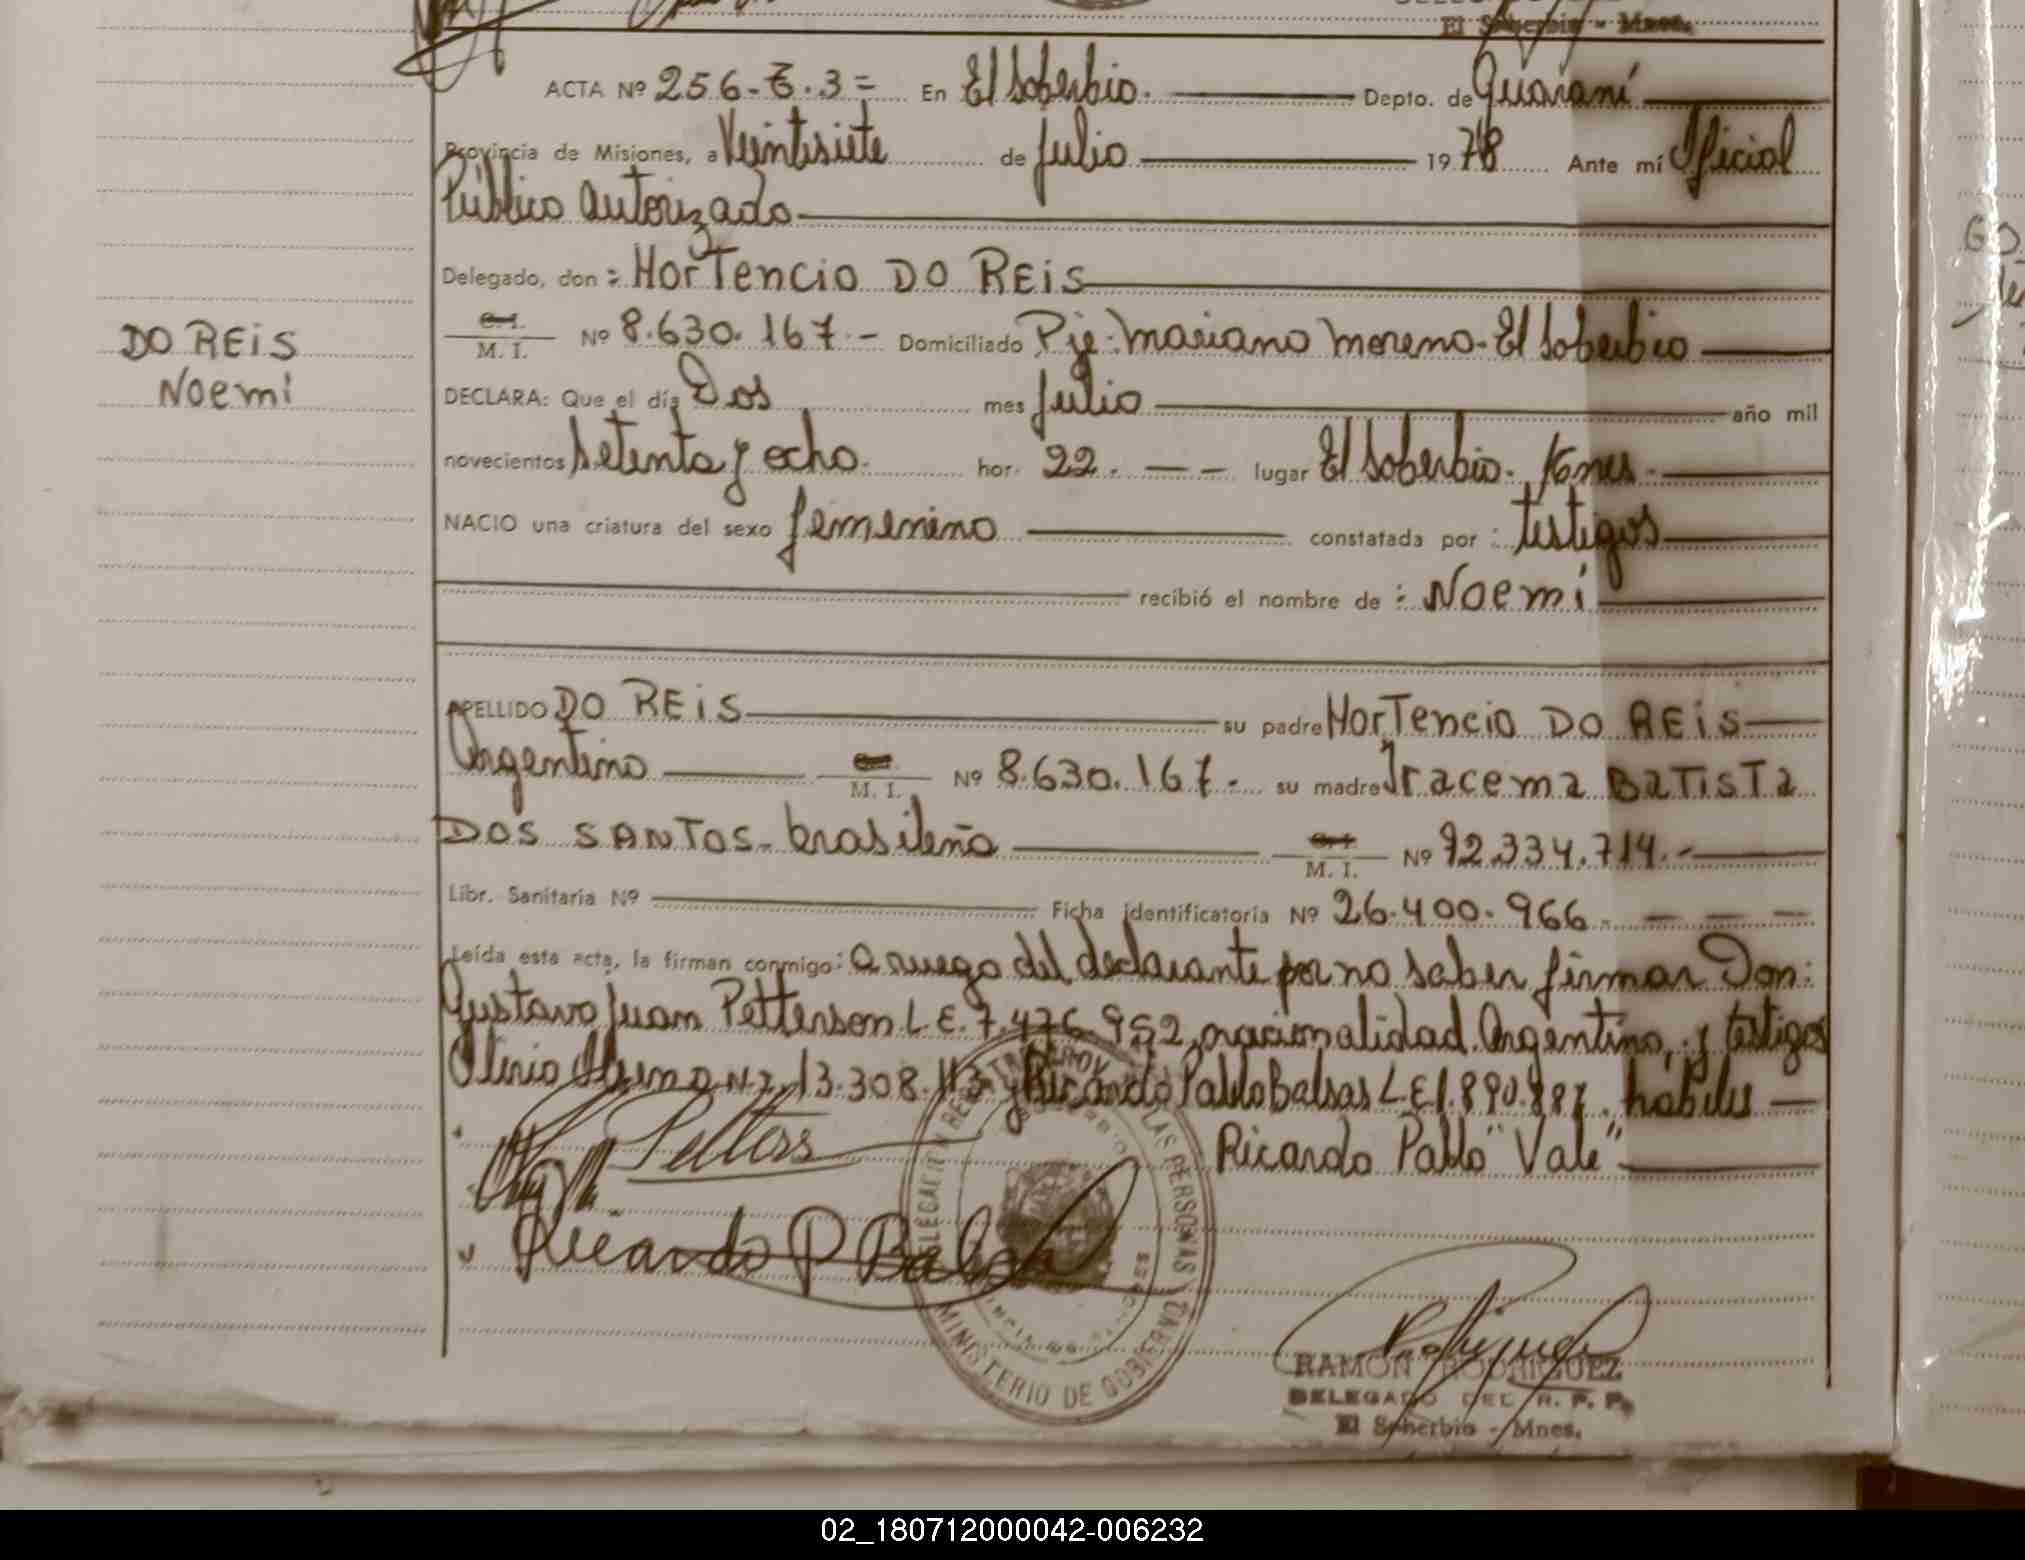 El Soberbio - Mnes.
ACTA Nº 256-E.3= En El Soberbio. Depto. de Guaraní
Provincia de Misiones, a Veintisiete de Julio 1978 Ante mí Oficial
Público autorizado
Delegado, don: HorTencio DO REis
DO REiS
Noemi
C.I. M. I. Nº 8.630.167.- Domiciliado Pje: Mariano Moreno-El Soberbio
DECLARA: Que el día Dos mes Julio año mil
novecientos Setenta y ocho. hor. 22. - - lugar El Soberbio. Mnes.
NACIO una criatura del sexo femenino constatada por: testigos
recibió el nombre de: Noemi
APELLIDO DO REiS su padre HorTencio DO REiS
Argentino M. I. Nº 8.630.167.- su madre Iracema BaTisTa
DOS SANTOS- brasileña M. I. Nº 92.334.714.-
Libr. Sanitaria Nº Ficha identificatoria Nº 26.400.966. - - -
Leída esta acta, la firman conmigo: a ruego del declarante por no saber firmar Don:
Gustavo Juan Petterson L.E. 7.476.952, nacionalidad Argentino, y testigos
13.308.113 y Ricardo Pablo Balsas L.E 1.890.887. hábiles
Ricardo Pablo "Vale"
Ricardo P Balsa
DELEGACION REGISTRO PROV. DE LAS PERSONAS
MINISTERIO DE GOBIERNO
RAMON RODRIGUEZ
DELEGADO DEL R. P. P.
El Soberbio - Mnes.
02_180712000042-006232